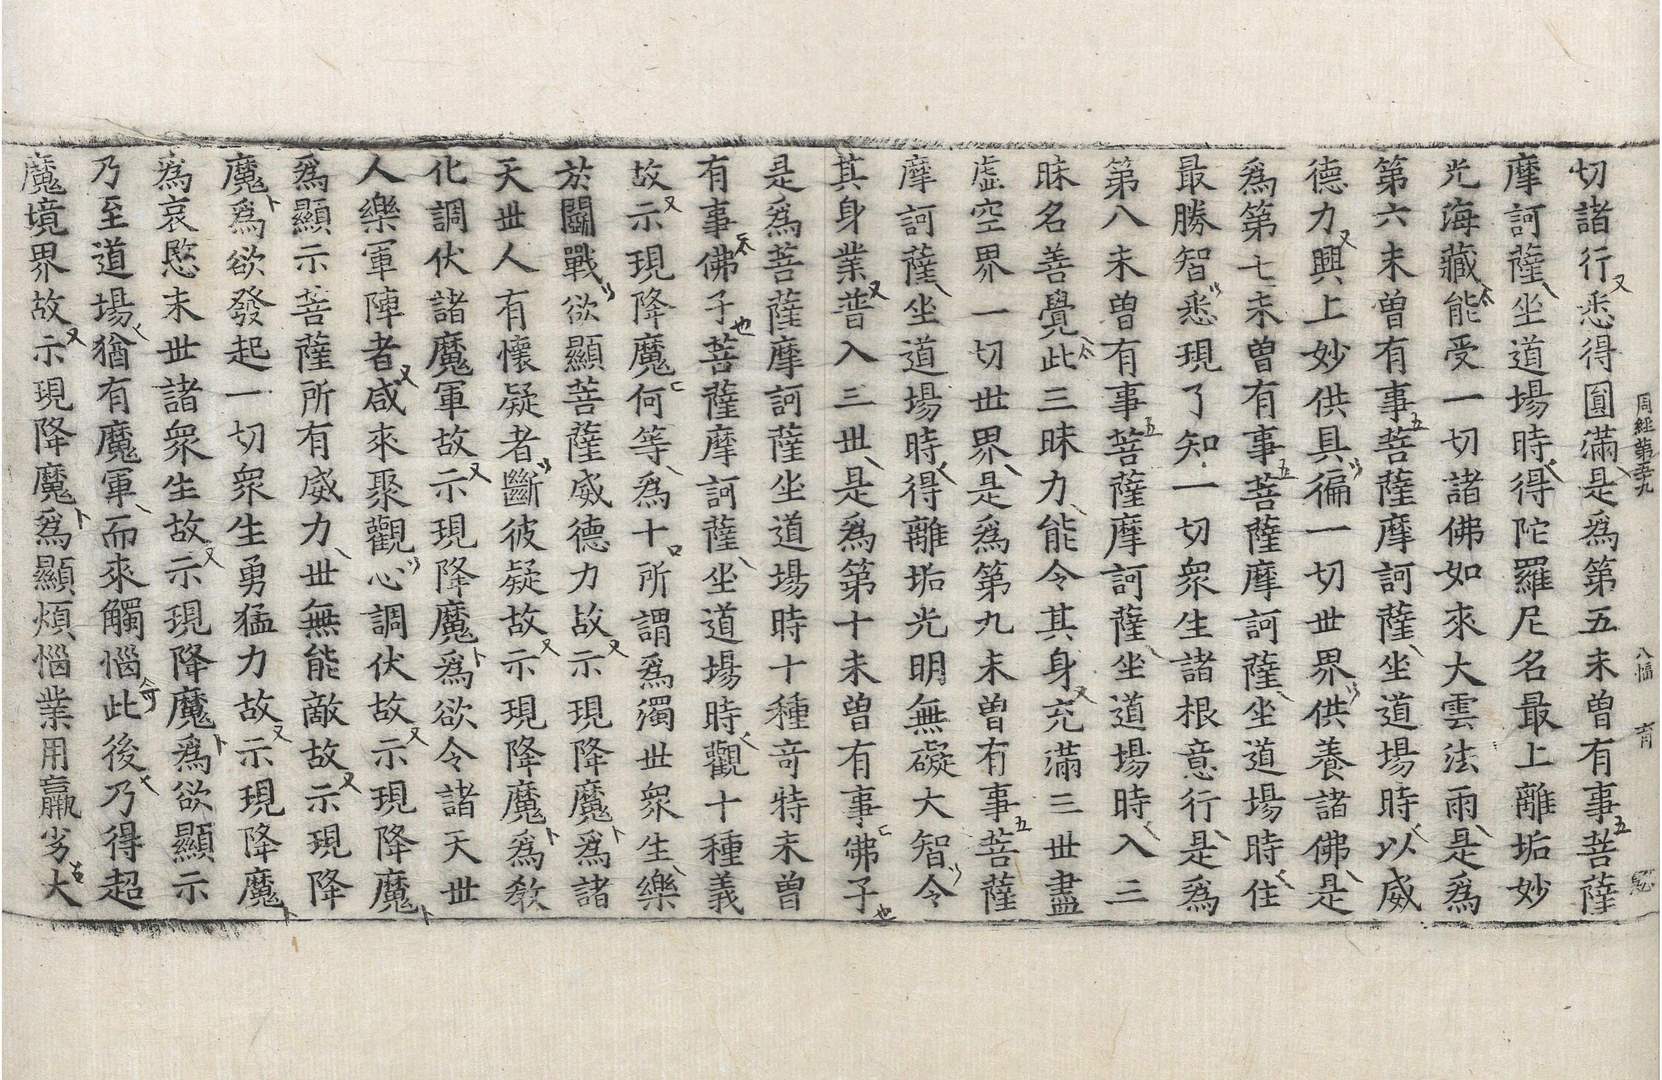 周經第五十九　八幅
切諸行悉得圓滿是爲第五未曾有事菩薩
摩訶薩坐道場時得陀羅尼名最上離垢妙
光海藏能受一切諸佛如來大雲法雨是爲
第六未曾有事菩薩摩訶薩坐道場時以威
德力興上妙供具徧一切世界供養諸佛是
爲第七未曾有事菩薩摩訶薩坐道場時住
最勝智悉現了知一切衆生諸根意行是爲
第八未曾有事菩薩摩訶薩坐道場時入三
昧名善覺此三昧力能令其身充滿三世盡
虛空界一切世界是爲第九未曾有事菩薩
摩訶薩坐道場時得離垢光明無礙大智令
其身業普入三世是爲第十未曾有事佛子
是爲菩薩摩訶薩坐道場時十種奇特未曾
有事佛子菩薩摩訶薩坐道場時觀十種義
故示現降魔何等爲十所謂爲濁世衆生樂
於鬪戰欲顯菩薩威德力故示現降魔爲諸
天世人有懷疑者斷彼疑故示現降魔爲教
化調伏諸魔軍故示現降魔爲欲令諸天世
人樂軍陣者咸來聚觀心調伏故示現降魔
爲顯示菩薩所有威力世無能敵故示現降
魔爲欲發起一切衆生勇猛力故示現降魔
爲哀愍末世諸衆生故示現降魔爲欲顯示
乃至道場猶有魔軍而來觸惱此後乃得超
魔境界故示現降魔爲顯煩惱業用羸劣大